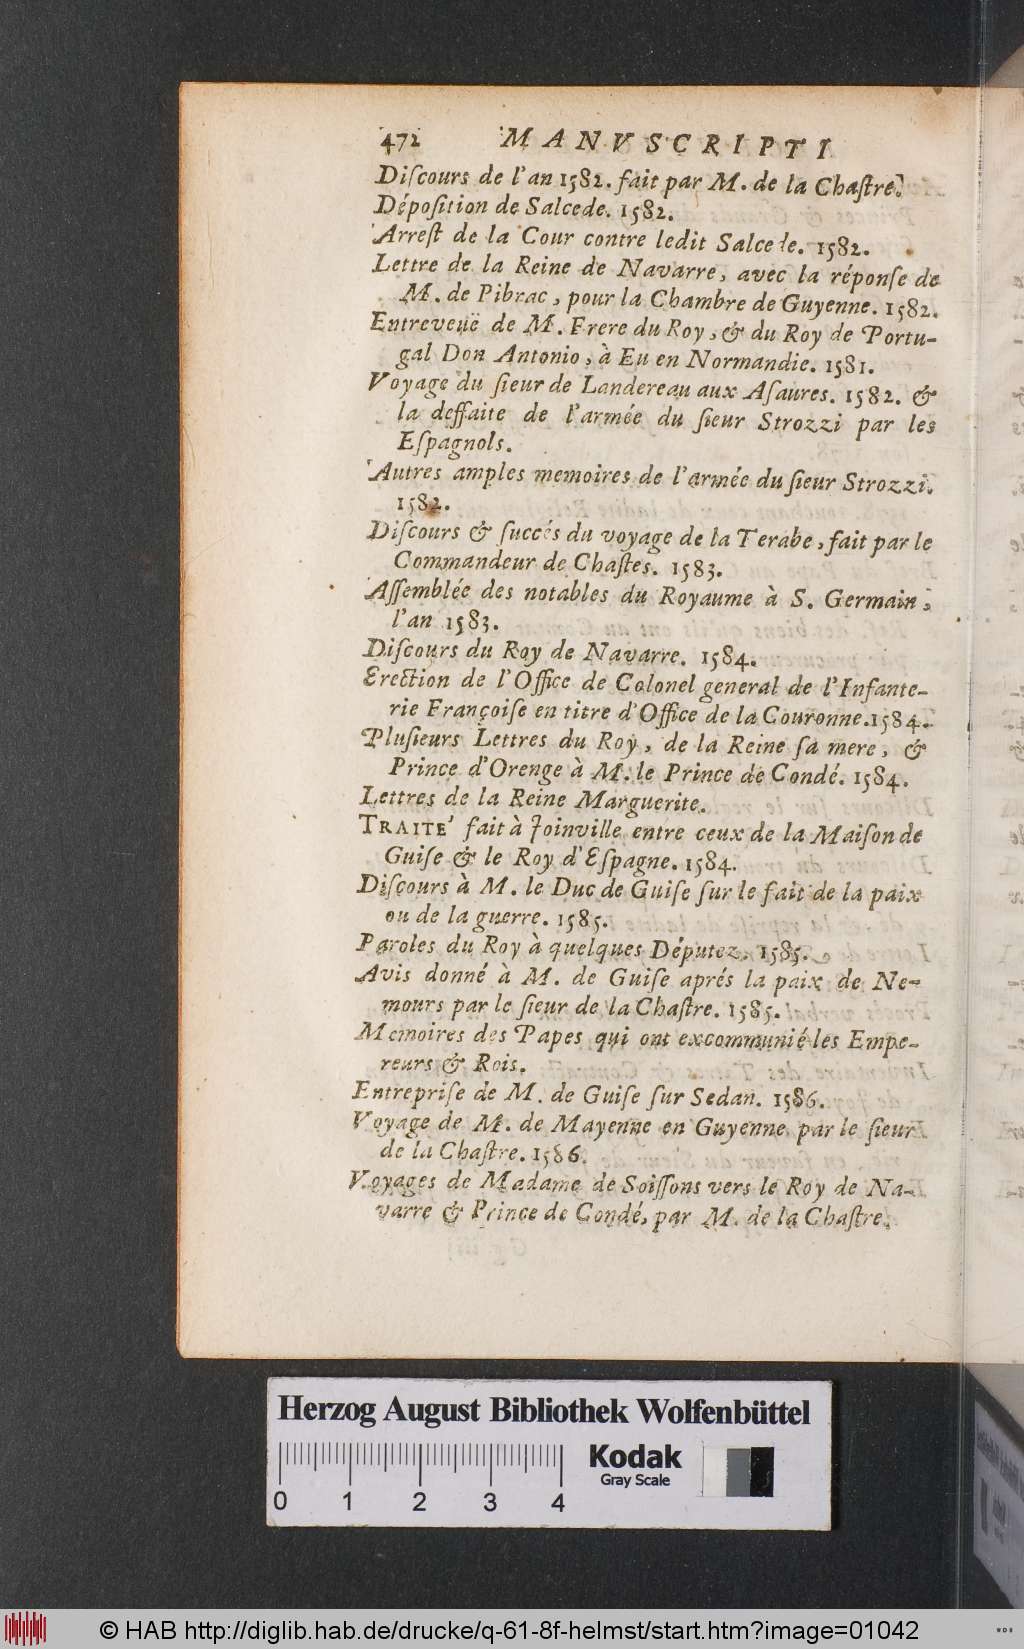 472 MANVSCRIPTI
Diſcours de l'an 1582. fait par M. de la Chaſtre.
Dépoſition de Salcede. 1582.
Arreſt de la Cour contre ledit Salcede. 1582.
Lettre de la Reine de Navarre, avec la réponſe de
M. de Pibrac, pour la Chambre de Guyenne. 1582.
Entreveuë de M. Frere du Roy, & du Roy de Portu-
gal Don Antonio, à Eu en Normandie. 1581.
Voyage du ſieur de Landereau aux Aſaures. 1582. &
la deffaite de l'armée du ſieur Strozzi par les
Eſpagnols.
Autres amples memoires de l'armée du ſieur Strozzi.
1582.
Diſcours & ſuccés du voyage de la Terabe, fait par le
Commandeur de Chaſtes. 1583.
Aſſemblée des notables du Royaume à S. Germain,
l'an 1583.
Diſcours du Roy de Navarre. 1584.
Erection de l'Office de Colonel general de l'Infante-
rie Françoiſe en titre d'Office de la Couronne. 1584.
Pluſieurs Lettres du Roy, de la Reine ſa mere, &
Prince d'Orenge à M. le Prince de Condé. 1584.
Lettres de la Reine Marguerite.
TRAITE' fait à Joinville entre ceux de la Maiſon de
Guiſe & le Roy d'Eſpagne. 1584.
Diſcours à M. le Duc de Guiſe ſur le fait de la paix
ou de la guerre. 1585.
Paroles du Roy à quelques Députez. 1585.
Avis donné à M. de Guiſe aprés la paix de Ne-
mours par le ſieur de la Chaſtre. 1585.
Memoires des Papes qui ont excommunié les Empe-
reurs & Rois.
Entrepriſe de M. de Guiſe ſur Sedan. 1586.
Voyage de M. de Mayenne en Guyenne par le ſieur
de la Chaſtre. 1586.
Voyages de Madame de Soiſſons vers le Roy de Na-
varre & Prince de Condé, par M. de la Chaſtre.
Herzog August Bibliothek Wolfenbüttel
Kodak
Gray Scale
0 1 2 3 4
© HAB http://diglib.hab.de/drucke/q-61-8f-helmst/start.htm?image=01042